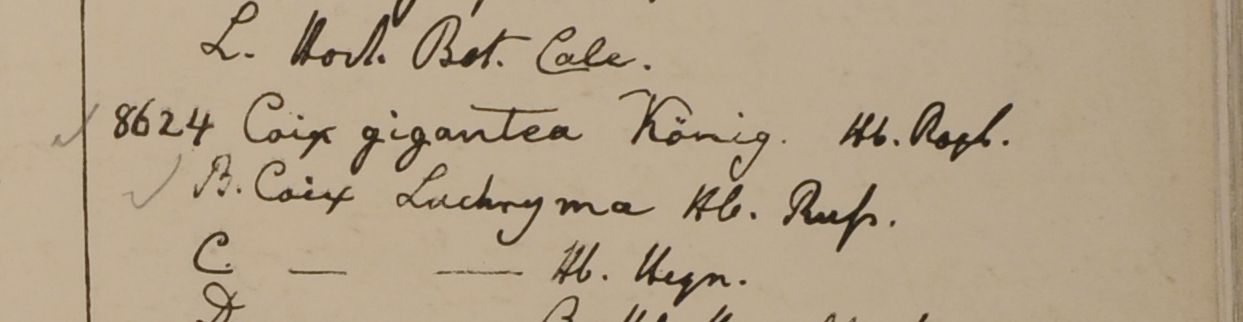 L. Hort. Bot. Calc.
8624 Coix gigantea König. Hb. Roxb.
B. Coix Lachryma Hb. Russ.
C. — — Hb. Heyn.
D